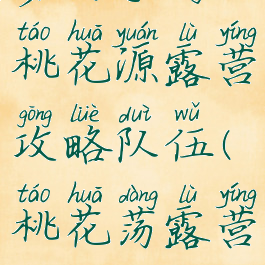 táo huā yuán lù yíng
桃花源露营
gōng lüè duì wǔ
攻略队伍(
táo huā dàng lù yíng
桃花荡露营